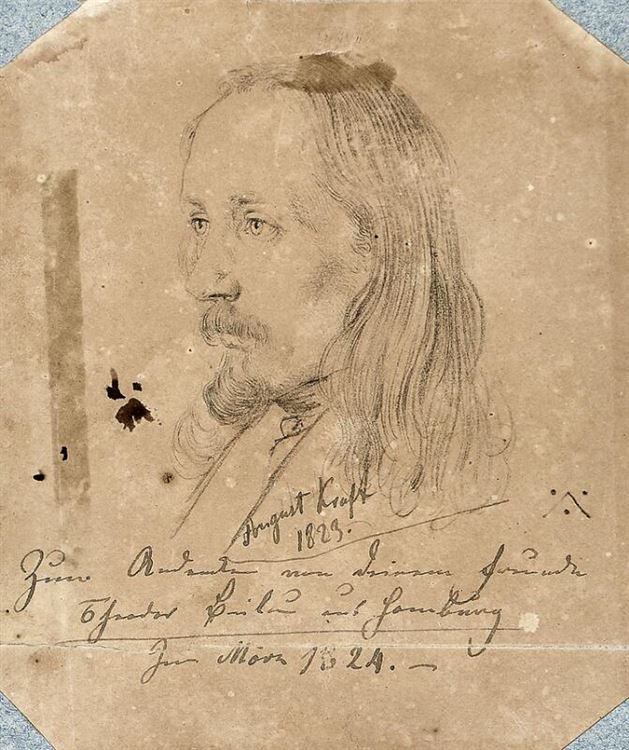 August Kraft
1823.
Zum Andenken von deinem Freunde
Theodor Bülau aus Hamburg
Im März 1824. –